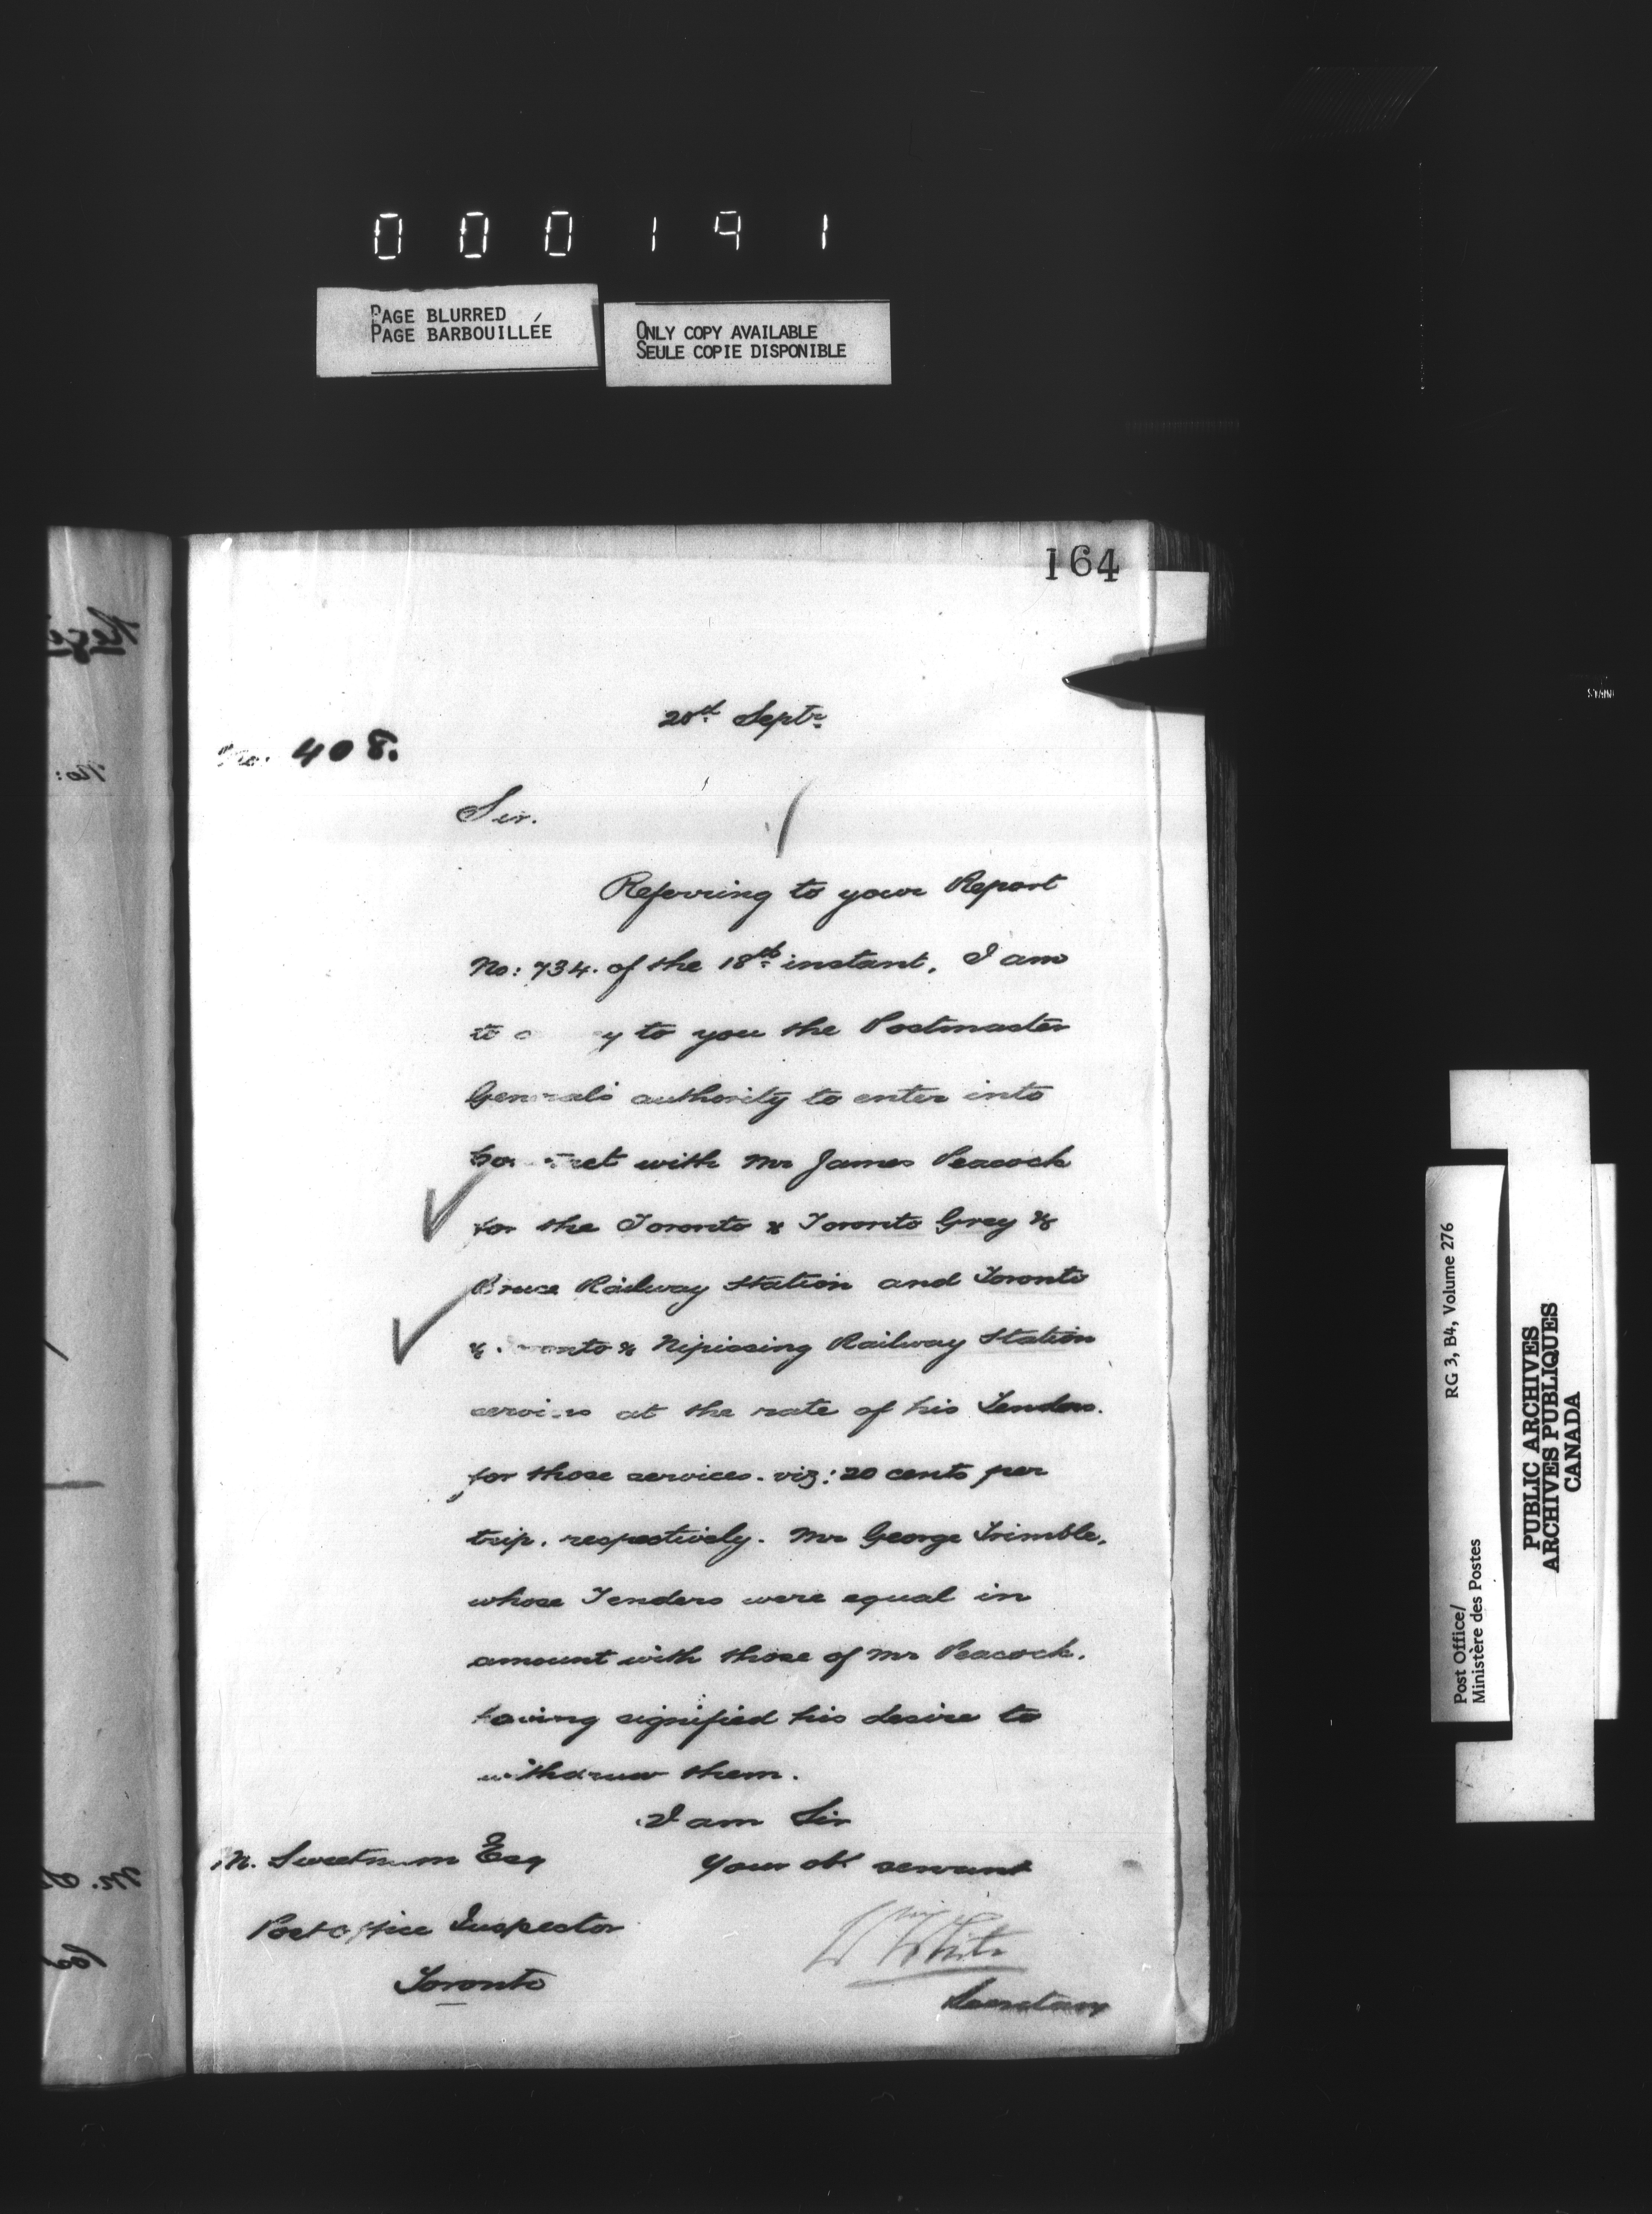 000191
PAGE BLURRED
PAGE BARBOUILLÉE
ONLY COPY AVAILABLE
SEULE COPIE DISPONIBLE
164
Septr
No. 408.
Sir.
Referring to your Report
No: 734. of the 18th instant, I am
to y to you the Postmaster
General's authority to enter into
Contract with Mr James Peacock
for the Toronto & Toronto Grey &
Bruce Railway Station and Toronto
& Toronto & Nipissing Railway Station
services at the rate of his Tenders.
for those services. viz: 20 cents per
trip. respectively. Mr George Trimble.
whose Tenders were equal in
amount with those of Mr Peacock.
having signified his desire to
withdraw them.
I am Sir
Your obt servant
M. Sweetnam Esq
Post Office Inspector
Toronto
W White
Secretary
RG 3, B4, Volume 276
Post Office/
Ministère des Postes
PUBLIC ARCHIVES
ARCHIVES PUBLIQUES
CANADA